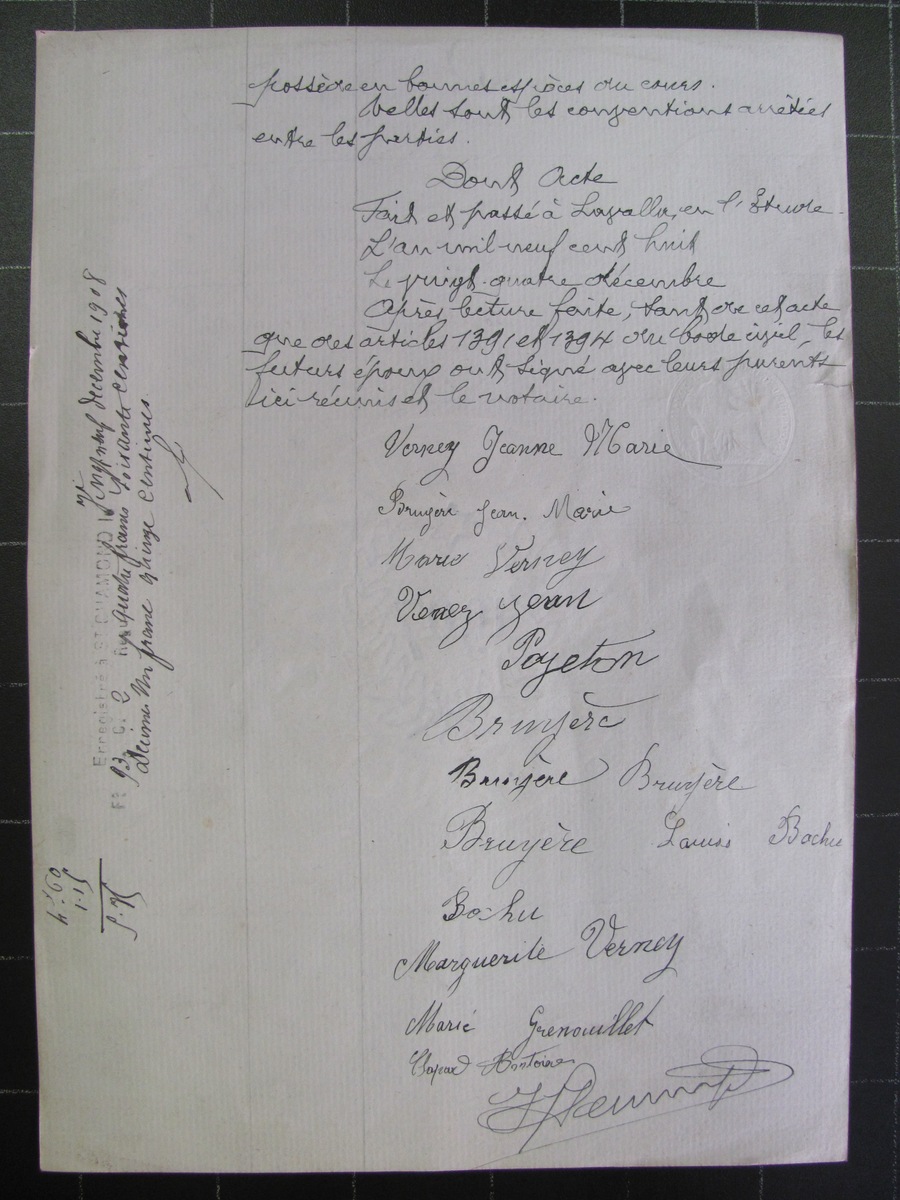 possède en bonnes espèces du cours.
Telles sont les conventions arrêtées
entre les parties.
Dont Acte
Fait et passé à Lavalla, en l'Etude.
L'an mil neuf cent huit
Le vingt-quatre décembre
Après lecture faite, tant de cet acte
que des articles 1391 et 1394 du Code civil, les
futurs époux ont signé avec leurs parents
ici réunis et le notaire.
Verney Jeanne Marie
Bruyère Jean. Marie
Marie Verney
Verney Jean
Payeton
Bruyère
Bruyère Bruyère
Bruyère Louis Bochu
Bochu
Marguerite Verney
Marie Grenouillet
Antoine
Enregistré à ST CHAMOND le vingt neuf décembre 1908
Fo 93 C. 2 Reçu quatre francs soixante centimes
Décimes Un franc quinze centimes
4f.60
1.15
5.75